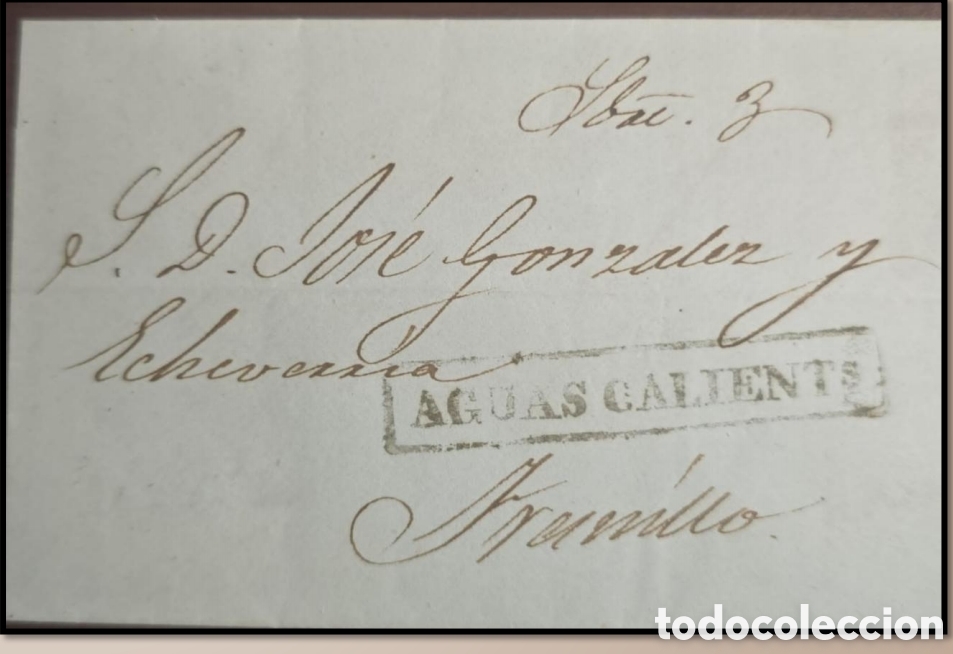 Sbre. 3
S. D. José Gonzalez y
Echeverria
AGUAS CALIENTS
todocoleccion